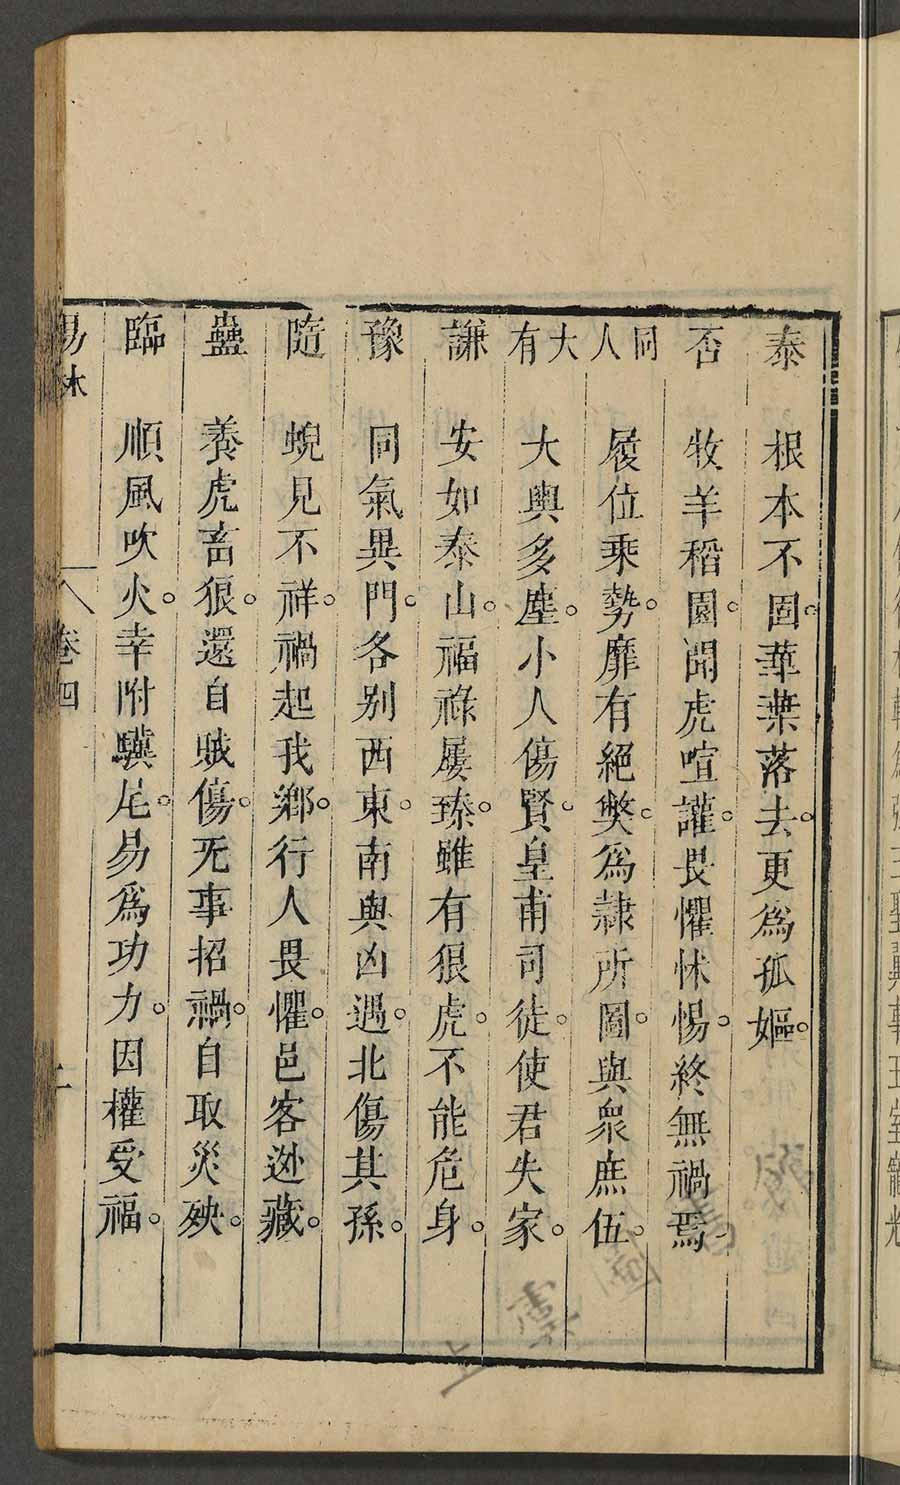 泰　根本不固。華葉落去。更爲孤嫗。
否　牧羊稻園。聞虎喧讙。畏懼怵惕。終無禍焉
同人　履位乘勢。靡有絕獘。爲隷所圖。與衆庶伍。
大有　大輿多塵。小人傷賢。皇甫司徒。使君失家。
謙　安如泰山。福祿屢臻。雖有狠虎。不能危身。
豫　同氣異門。各别西東。南與凶遇。北傷其孫。
隨　蜺見不祥。禍起我鄉。行人畏懼。邑客逃藏。
蠱　養虎畜狠。還自賊傷。无事招禍。自取災殃。
臨　順風吹火。幸附驥尾。易爲功力。因權受福。
易林　卷四